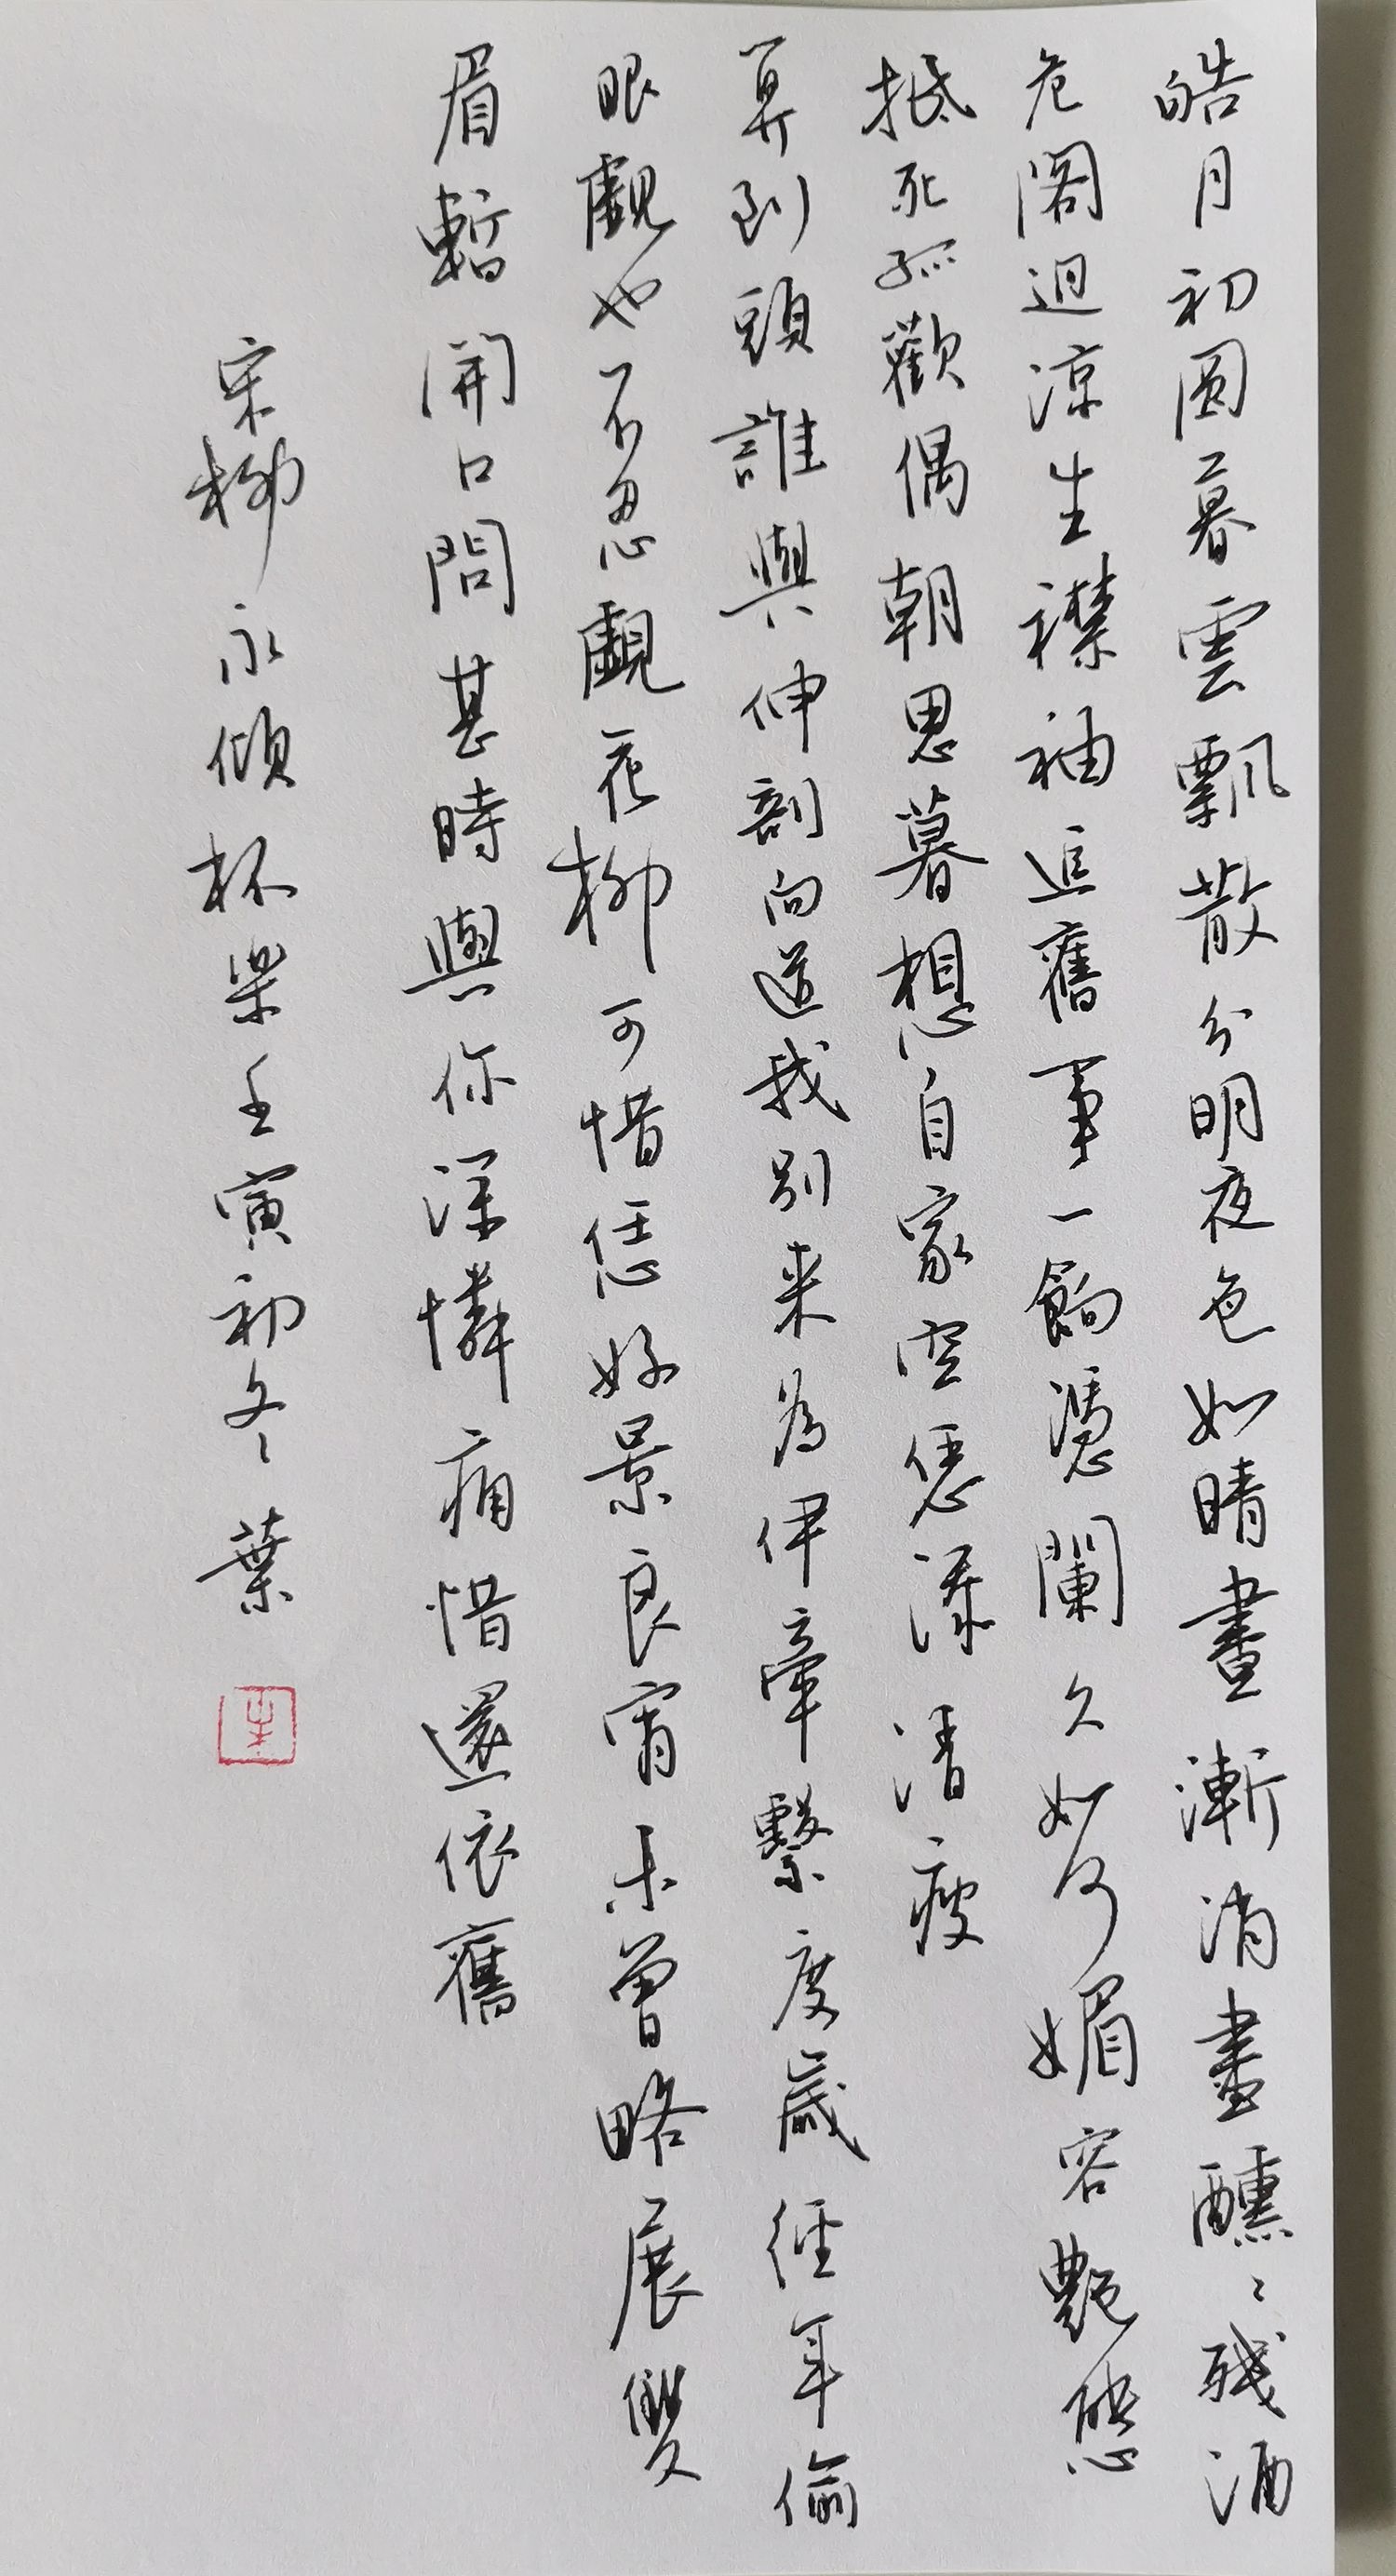 皓月初圓暮雲飄散分明夜色如晴晝漸消盡醺〻殘酒
危閣迥涼生襟袖追舊事一餉憑闌久如何媚容艷態
抵死孤歡偶朝思暮想自家空恁添清瘦
算到頭誰與伸剖向道我別来為伊牽繫度歲經年偷
眼覷也不忍覷花柳可惜恁好景良宵未曾略展雙
眉暫開口問甚時與你深憐痛惜還依舊
宋柳永傾杯樂壬寅初冬葉